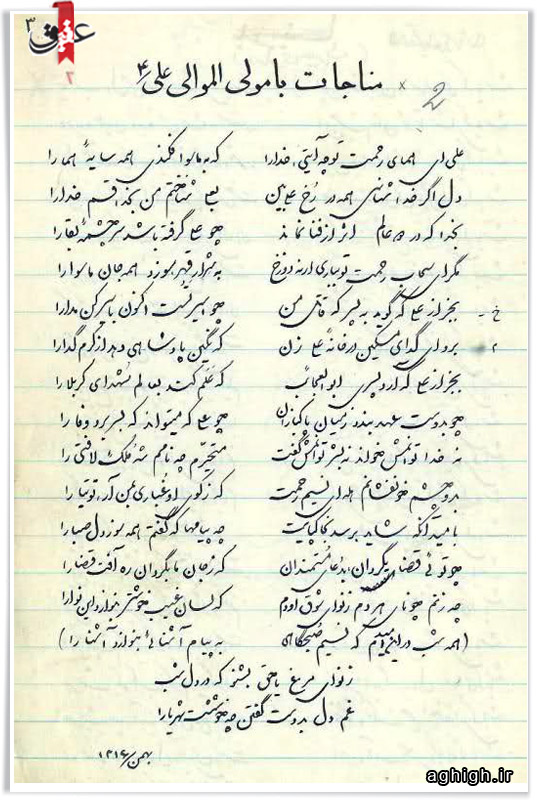 عقیق ۳
۲
مناجات با مولی الموالی علی ع
علی ای همای رحمت تو چه آیتی خدا را که به ماسوا فکندی همه سایهٔ هما را
دل اگر خداشناسی همه در رخ علی بین بعلی شناختم من بخدا قسم خدا را
بخدا که در دو عالم اثر از فنا نماند چو علی گرفته باشد سر چشمهٔ بقا را
مگر ای سحاب رحمت تو بباری ارنه دوزخ به شرار قهر سوزد همه جان ماسوا را
بجز از علی که گوید به پسر که قاتل من چو اسیر تست اکنون باسیر کن مدارا
برو ای گدای مسکین در خانهٔ علی زن که نگین پادشاهی دهد از کرم گدا را
بجز از علی که آرد پسری ابوالعجائب که علم کند بعالم شهدای کربلا را
چو بدوست عهد بندد ز میان پاکبازان چو علی که میتواند که بسر برد وفا را
نه خدا توانمش خواند نه بشر توانمش گفت متحیرم چه نامم شه ملک لافتی را
بدو چشم خونفشانم هله ای نسیم رحمت که ز کوی او غباری بمن آر توتیا را
بامید آنکه شاید برسد بخاک پایت چه پیامها که گفتم همه سوز دل صبا را
چو توئی قضا بگردان بدعای مستمندان که ز جان ما بگردان ره آفت قضا را
چه زنم چو نای هر دم ز نوای شوق او دم که لسان غیب خوشتر بنوازد این نوا را
(همه شب در این امیدم که نسیم صبحگاهی به پیام آشنائی بنوازد آشنا را)
ز نوای مرغ یا حق بشنو که در دل شب
غم دل بدوست گفتن چه خوشست شهریارا
بهمن
aghigh.ir